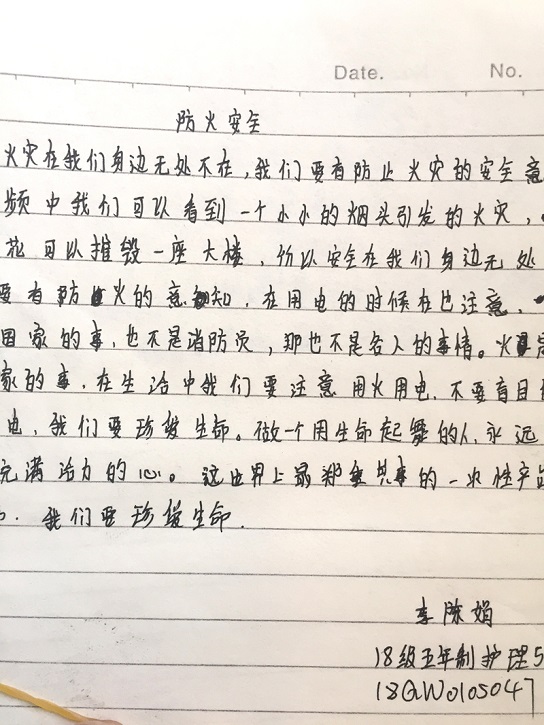 Date. No.
防火安全
火灾在我们身边无处不在,我们要有防止火灾的安全意
频中我们可以看到一个小小的烟头引发的火灾,
花可以摧毁一座大楼,所以安全在我们身边无处
要有防火的意知,在用电的时候在也注意,
国家的事,也不是消防员,那也不是各人的事情。火
家的事,在生活中我们要注意用火用电,不要盲目
电,我们要珍爱生命。做一个用生命起舞的人,永远
充满活力的心。这世界上最 的一次性产品
我们要珍爱生命.
李陈娟
18级五年制护理5
18GW0105047